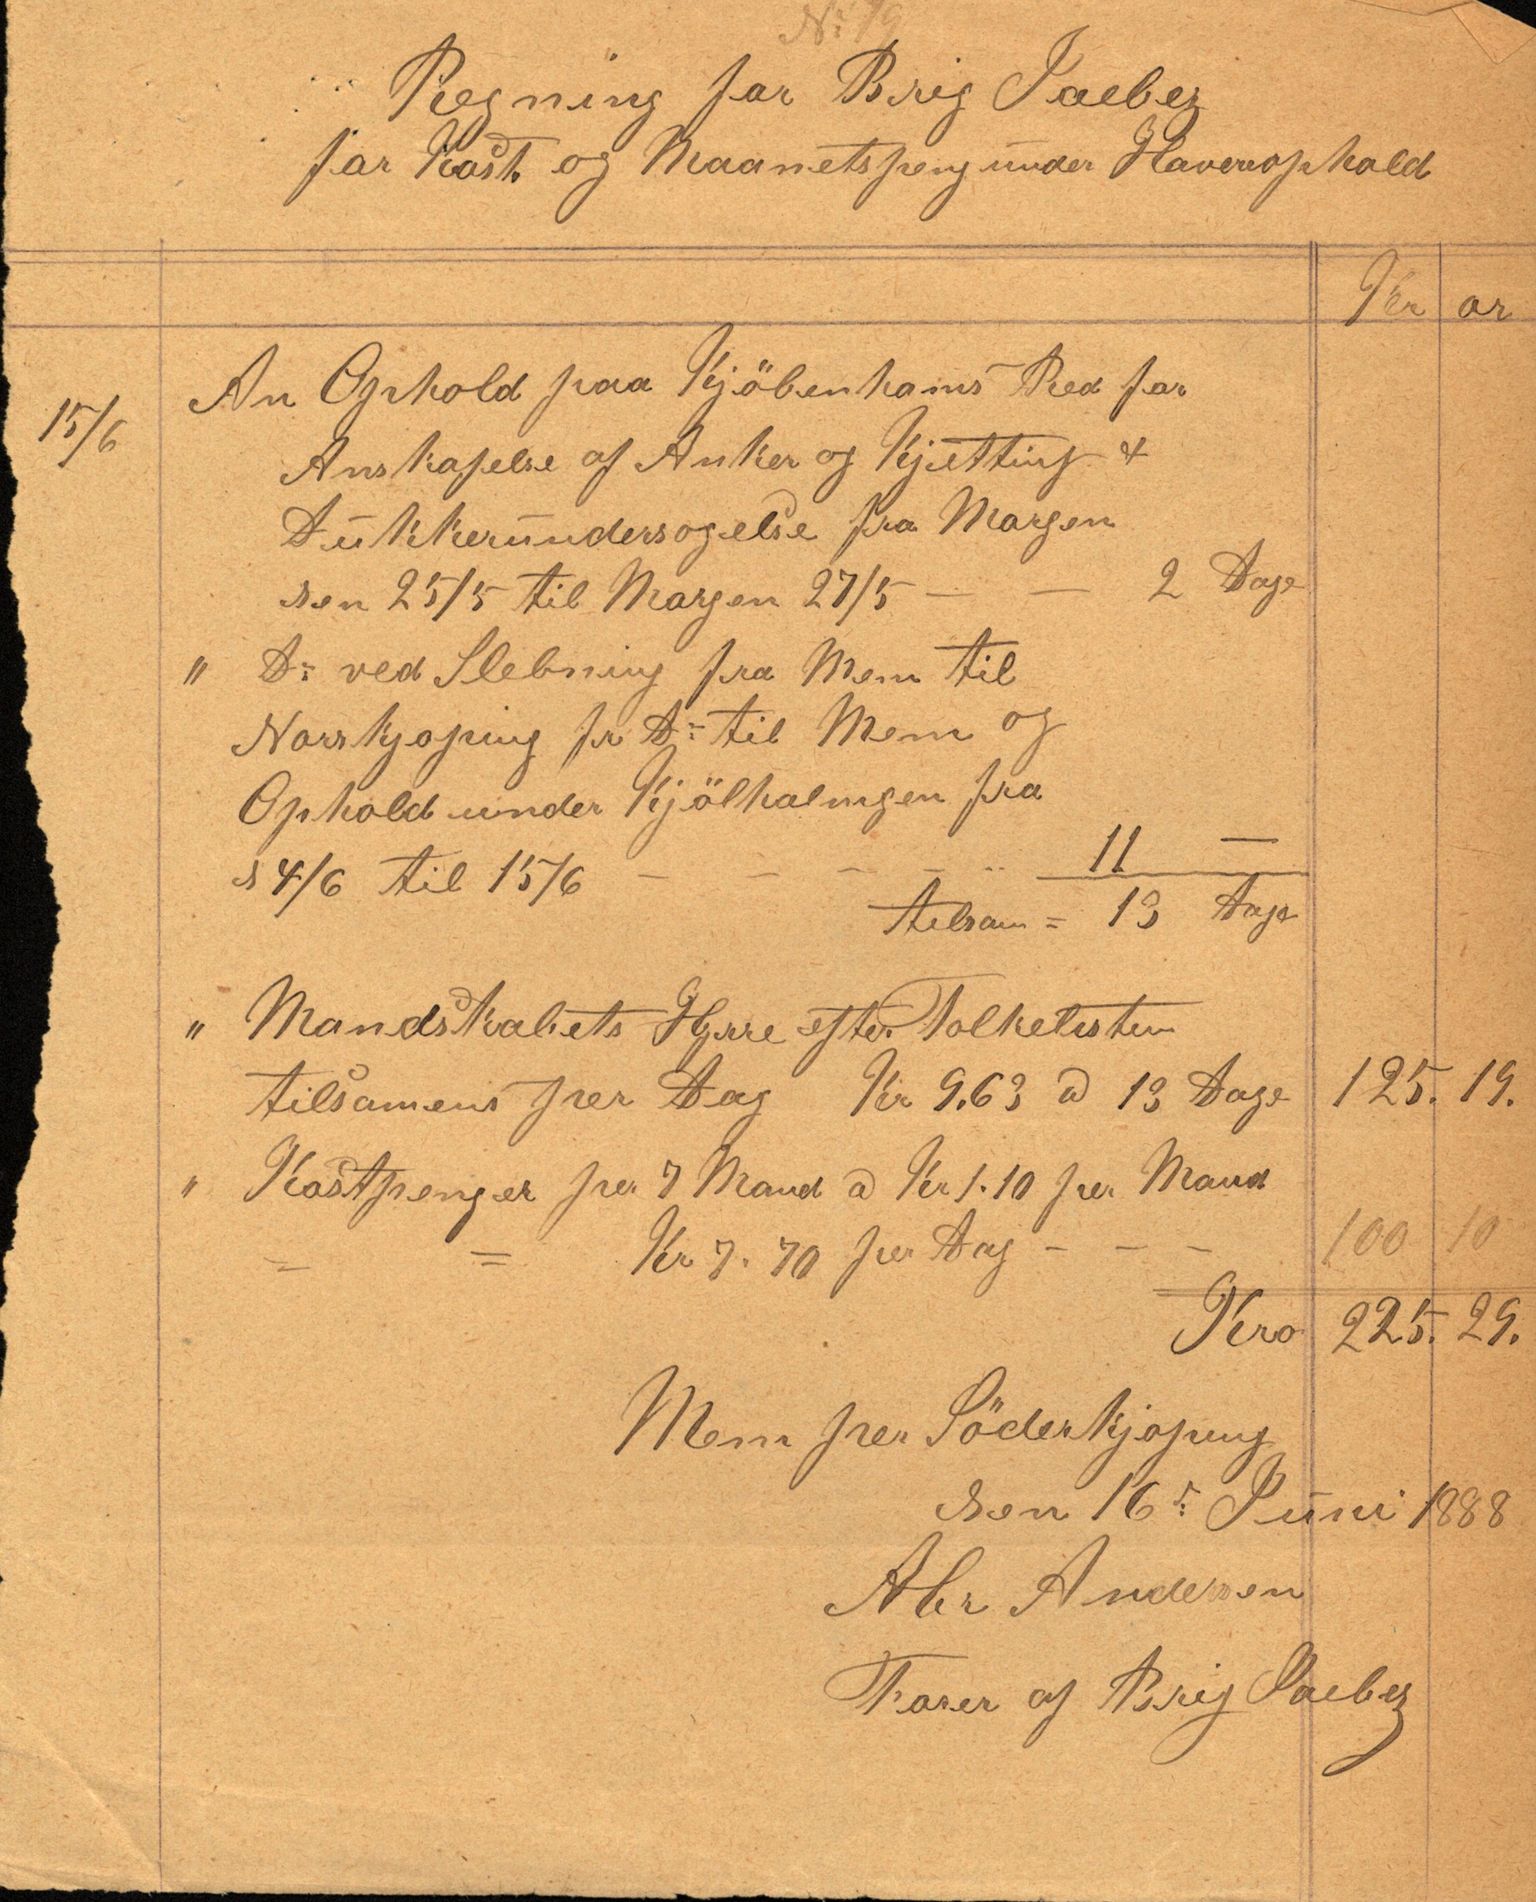 No 19
Regning for Brig Jaebez
for Kost og Maanetspeng under Havenophold
Kr or
15/6 An Ophold paa Kjöbenhamns Red for
Anskafelse af Anker og Kjetting &
Dukkerundersogelse fra Morgen
den 25/5 til Morgen 27/5 — — 2 Dage
" Do ved Slebning fra Mem til
Norrkjoping fr Do til Mem og
Ophold under Kjölhalingen fra
d 4/6 til 15/6 - - - - - 11 —
tilsam = 13 Dage
" Mandskabets Hyrre efter Folkelisten
tilsamens per Dag Kr 9.63 a 13 Dage 125. 19.
" Kostpenger per 7 Mand a Kr 1.10 per Mand
= = Kr 7.70 per Dag - - - 100 10
Kro 225. 29.
Mem per Söderkjoping
den 16d: Juni 1888
Abr Andersen
Forer af Brig Jaebez